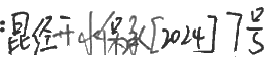 :昆经开水保承[2024]7号